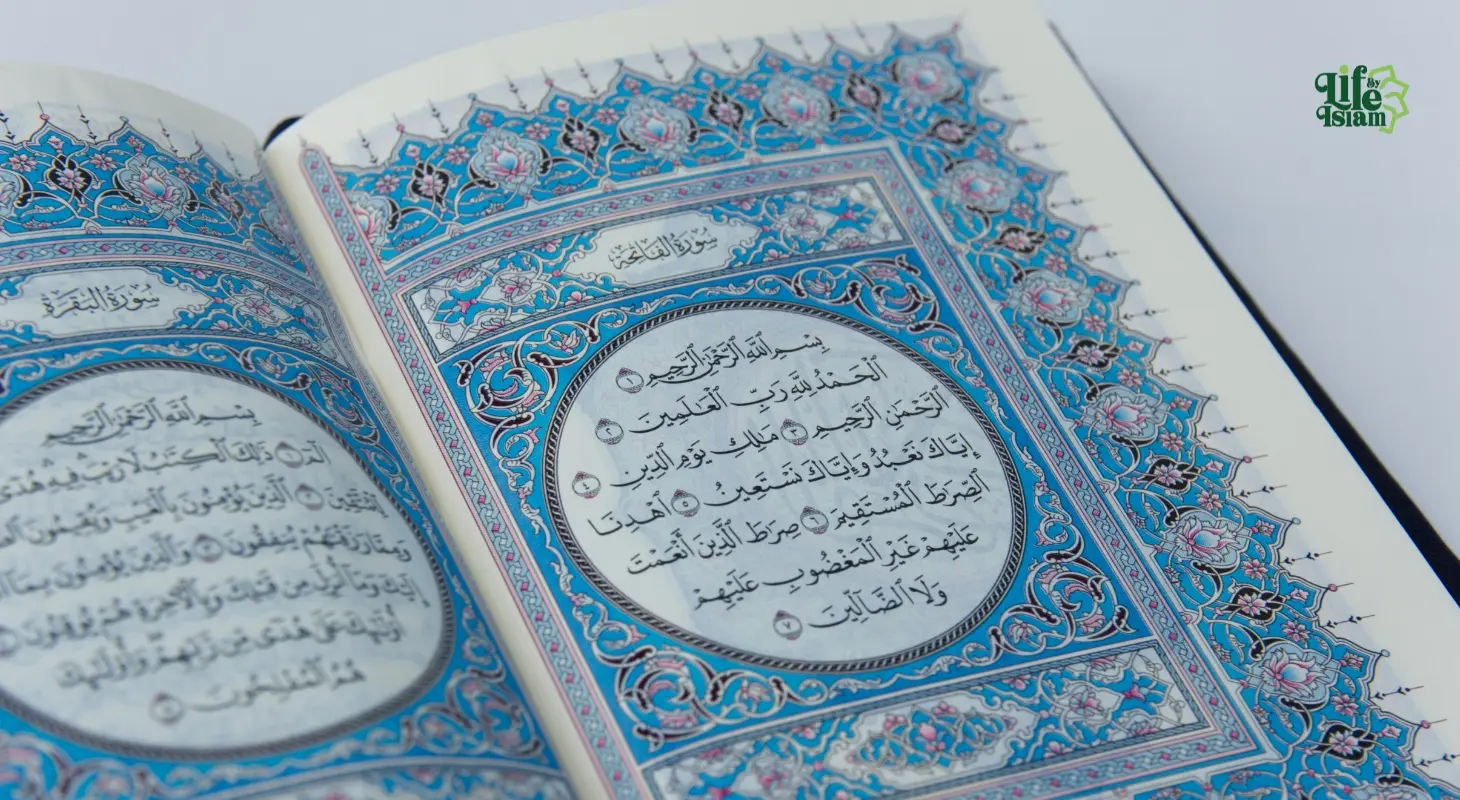 سُورَةُ الفَاتِحَةِ
بِسْمِ ٱللَّهِ ٱلرَّحْمَٰنِ ٱلرَّحِيمِ ١
ٱلْحَمْدُ لِلَّهِ رَبِّ ٱلْعَٰلَمِينَ ٢
ٱلرَّحْمَٰنِ ٱلرَّحِيمِ ٣ مَٰلِكِ يَوْمِ ٱلدِّينِ ٤
إِيَّاكَ نَعْبُدُ وَإِيَّاكَ نَسْتَعِينُ ٥ ٱهْدِنَا
ٱلصِّرَٰطَ ٱلْمُسْتَقِيمَ ٦ صِرَٰطَ ٱلَّذِينَ أَنْعَمْتَ
عَلَيْهِمْ غَيْرِ ٱلْمَغْضُوبِ عَلَيْهِمْ
وَلَا ٱلضَّآلِّينَ ٧
سُورَةُ البَقَرَةِ
بِسْمِ ٱللَّهِ ٱلرَّحْمَٰنِ ٱلرَّحِيمِ
الٓمٓ ١ ذَٰلِكَ ٱلْكِتَٰبُ لَا رَيْبَ فِيهِ هُدًى
لِّلْمُتَّقِينَ ٢ ٱلَّذِينَ يُؤْمِنُونَ بِٱلْغَيْبِ وَيُقِيمُونَ
وَمِمَّا رَزَقْنَٰهُمْ يُنفِقُونَ ٣ وَٱلَّذِينَ يُؤْمِنُونَ بِمَآ
إِلَيْكَ وَمَآ أُنزِلَ مِن قَبْلِكَ وَبِٱلْءَاخِرَةِ هُمْ يُوقِنُونَ ٤
أُو۟لَٰٓئِكَ عَلَىٰ هُدًى مِّن رَّبِّهِمْ وَأُو۟لَٰٓئِكَ
هُمُ ٱلْمُفْلِحُونَ ٥
Life
By
Islam